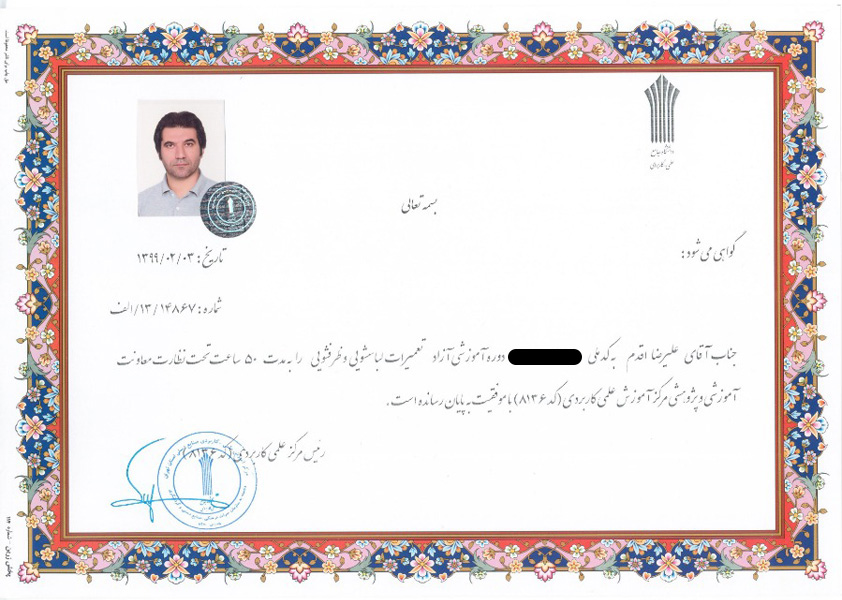 دانشگاه جامع
علمی کاربردی
بسمه تعالی
گواهی می شود :
تاریخ : ۱۳۹۹/۰۲/۰۳
شماره : ۱۳/۱۴۸۶۷/الف
جناب آقای علیرضا اقدم به کدملی دوره آموزشی آزاد تعمیرات لباسشویی و ظرفشویی را به مدت ۵۰ ساعت تحت نظارت معاونت
آموزشی و پژوهشی مرکز آموزش علمی کاربردی (کد ۸۱۳۶) با موفقیت به پایان رسانده است.
رئیس مرکز علمی کاربردی (کد ۸۱۳۶)